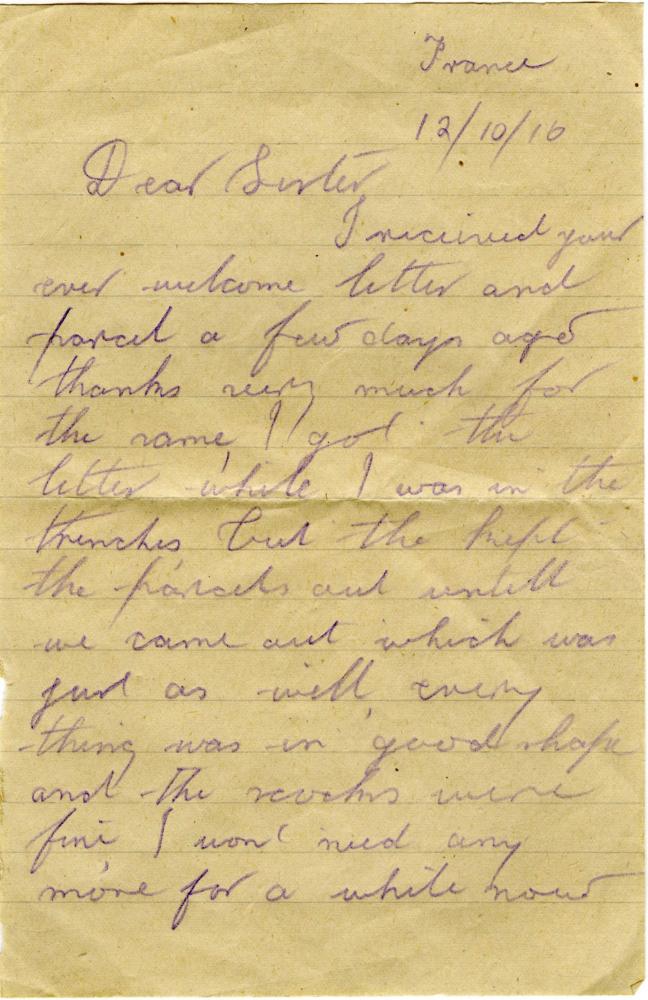 France
12/10/16
Dear Sister
I received your
ever welcome letter and
parcel a few days ago
thanks very much for
the same, I got the
letter while I was in the
trenches but the kept
the parcels out untill
we came out which was
just as well every
thing was in good shape
and the socks were
fine I won't need any
more for a while now